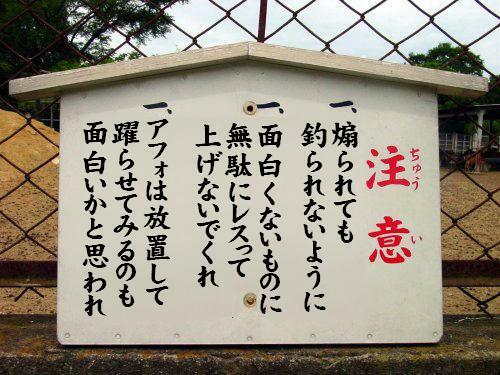 注意
ちゅうい
一、煽られても
釣られないように
一、面白くないものに
無駄にレスって
上げないでくれ
一、アフォは放置して
躍らせてみるのも
面白いかと思われ